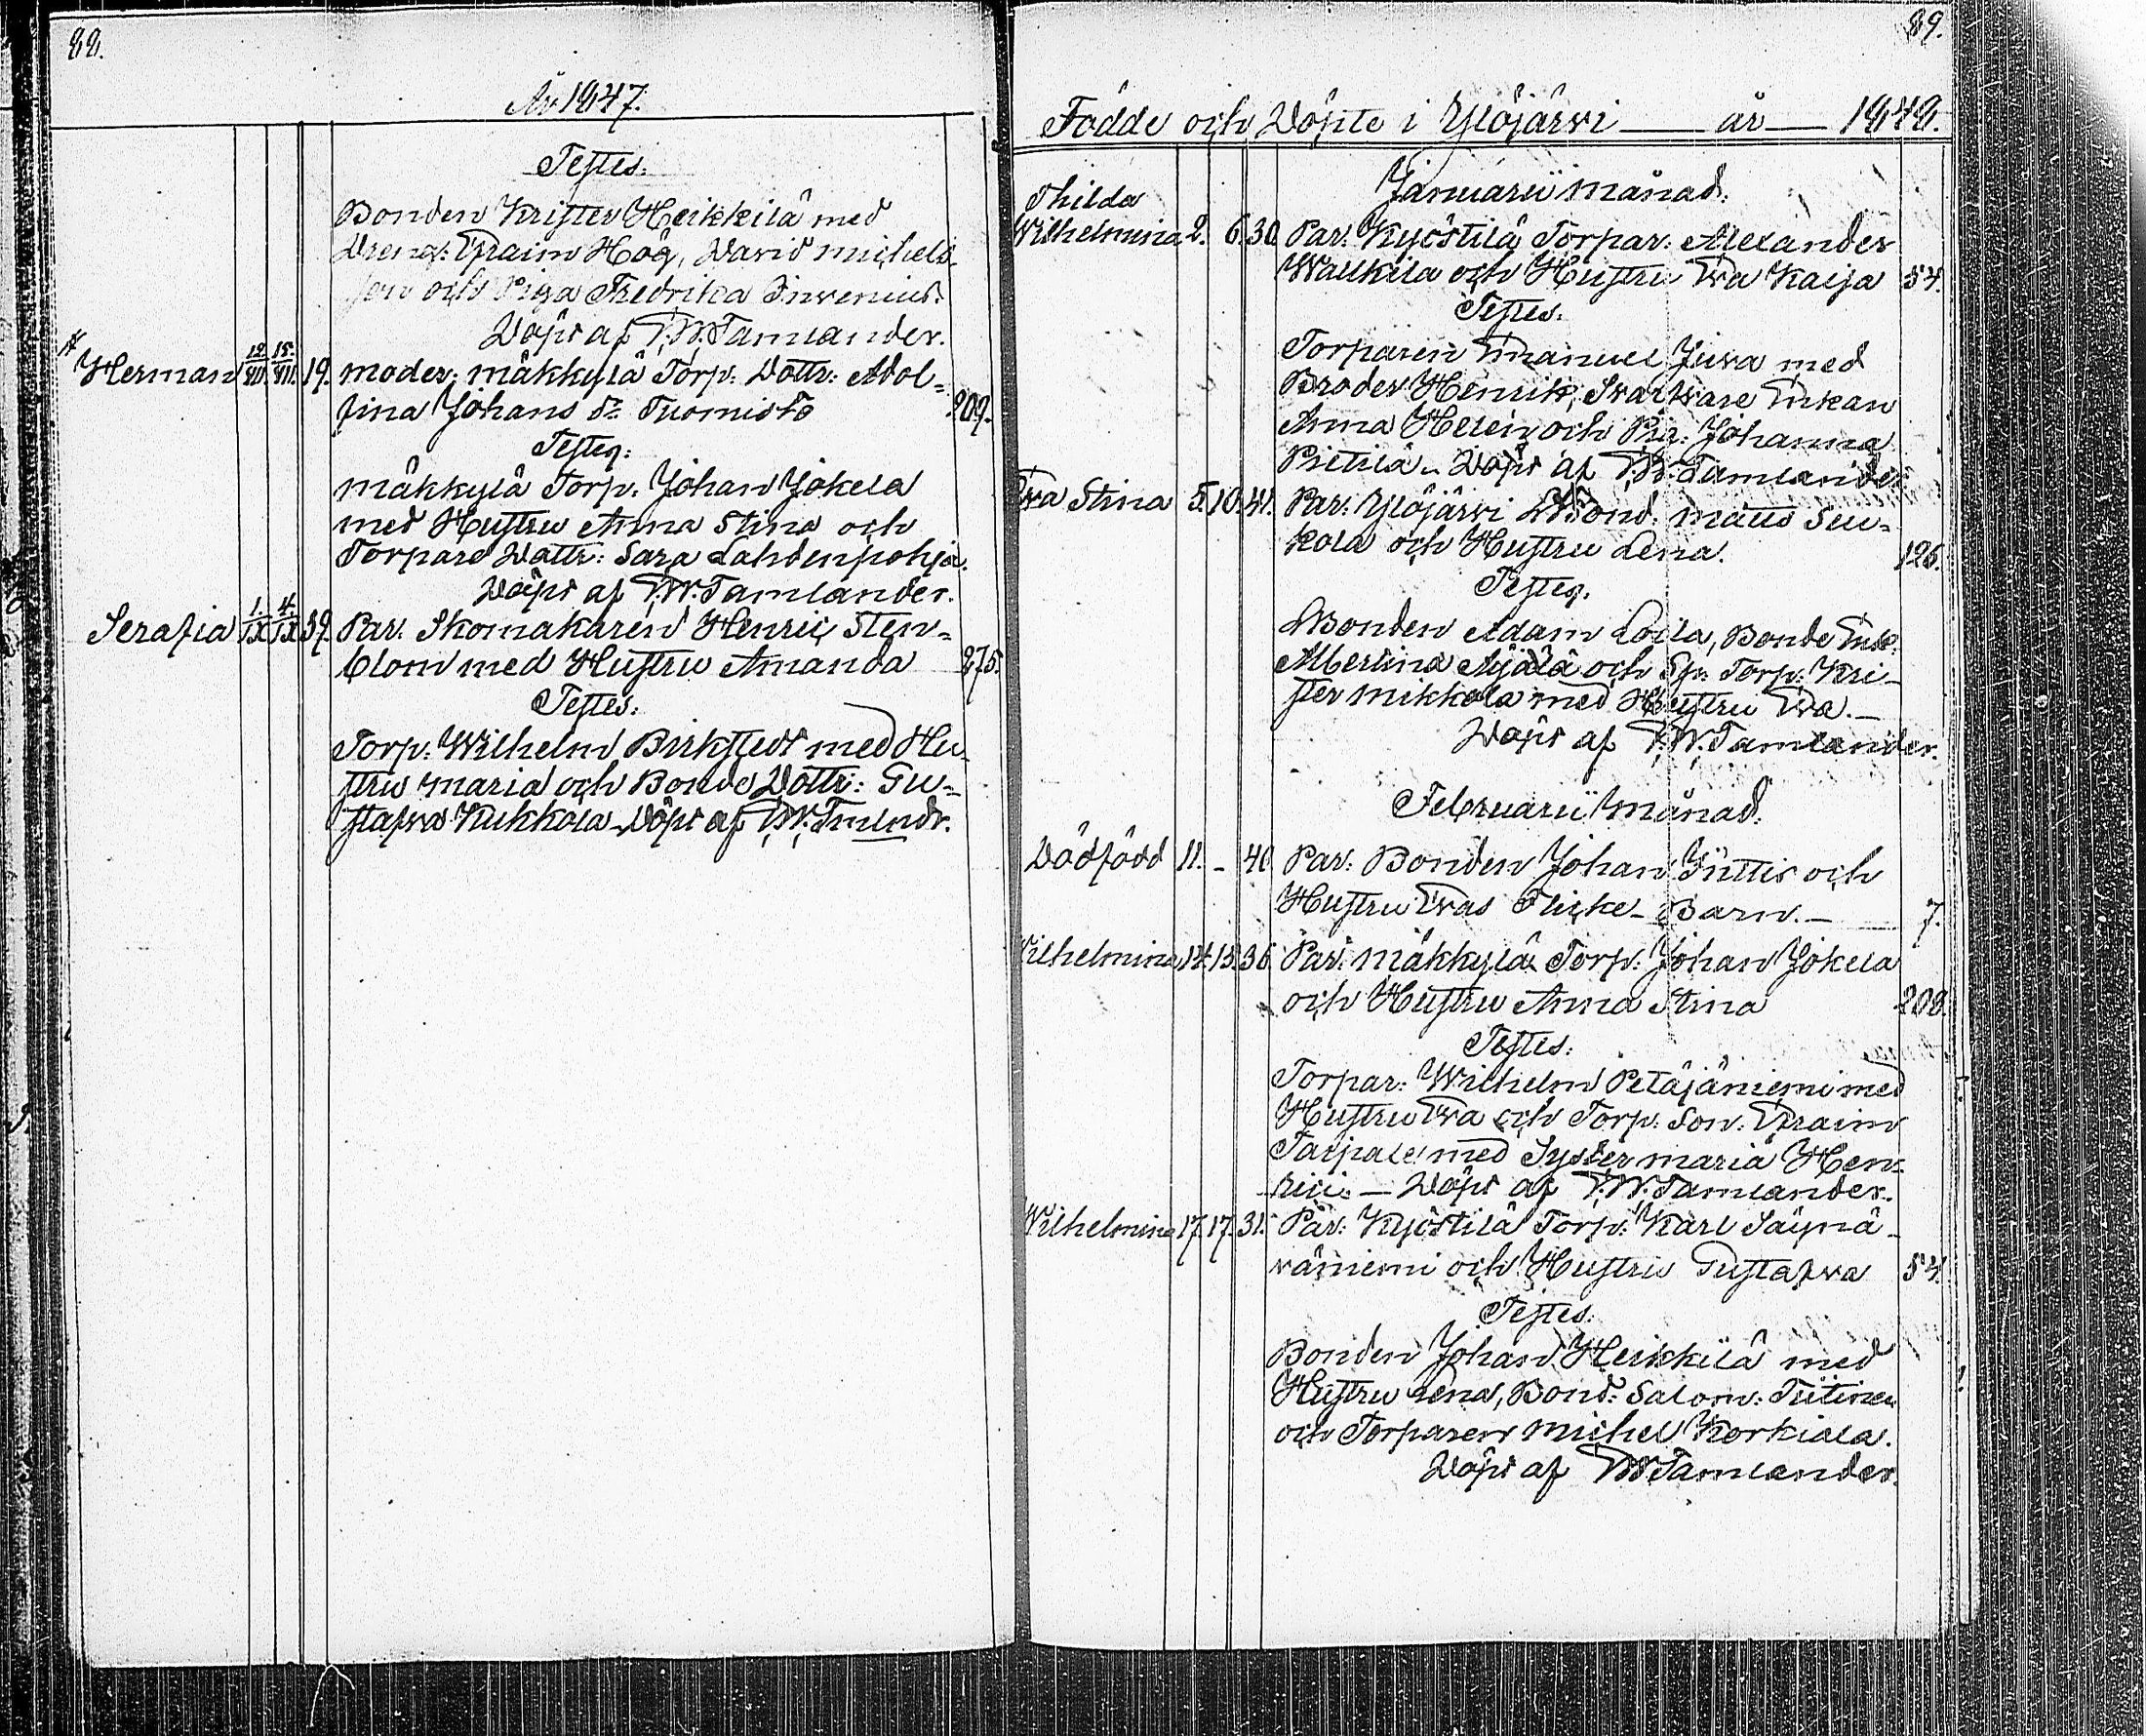 88.
År 1847.
Testes.
Bonden Krister Heikkilä med
Dreng: Efraim Hög, David Michels
son och Piga Fredrika Invenius.
Döpt af F.W. Tamlander.
Herman 12/VIII 15/VIII 19. Moder: Mäkkylä Torp: Dottr: Adol=
fina Johans dr Tuomisto 209.
Testes:
Mäkkylä Torp. Johan Jokela
med Hustru Anna Stina och
Torpare Dottr: Sara Lahdenpohja.
Döpt af F.W. Tamlander.
Serafia 1./IX 4./IX 39. Par. Skomakaren Henric Sten=
blom med Hustru Amanda 275.
Testes:
Torp: Wilhelm Birkstedt med Hu-
stru Maria och Bonde Dottr: Gu=
stafva Kukkola Döpt af F.W. Tmlndr.
89.
Födde och Döpte i Ylöjärvi år 1848.
Januarii Månad.
Thilda
Wilhelmina 2. 6. 30. Par: Kyöstilä Torpar: Alexander
Wallkila och Hustru Eva Kaisa 54.
Testes.
Torparen Emanuel Juva med
Broder Henrik, Svarfvare Enkan
Anna Helen och Pig: Johanna
Pietilä. Döpt af F.W. Tamlander
Eva Stina 5. 10. 41. Par: Ylöjärvi Bond: Matts Seu=
kola och Hustru Lena. 126.
Testes.
Bonden Adam Loila, Bonde Enk:
Albertina Äijälä och Sp: Torp: Kri-
ster Mikkola med Hustru Eva.
Döpt af F.W. Tamlander.
Februarii Månad.
Dödfödd 11. - 40 Par: Bonden Johan Yüttis och
Hustru Evas Flicke-Barn. 7.
Wilhelmina 14. 15. 36. Par: Mäkkylä Torp: Johan Jokela
och Hustru Anna Stina 208.
Testes:
Torpar: Wilhelm Petäjäniemi med
Hustru Eva och Torp: Son: Efraim
Taipale med Syster Maria Hen=
rici. Döpt af F.W. Tamlander.
Wilhelmina 17. 17. 31. Par: Kyöstilä Torp: Karl Säynä-
väniemi och Hustru Gustafva 54.
Testes.
Bonden Johan Heikkilä med
Hustru Lena, Bond: Salom: Tiitinen
och Torparen Michel Korkiala.
Döpt af F.W. Tamlander.